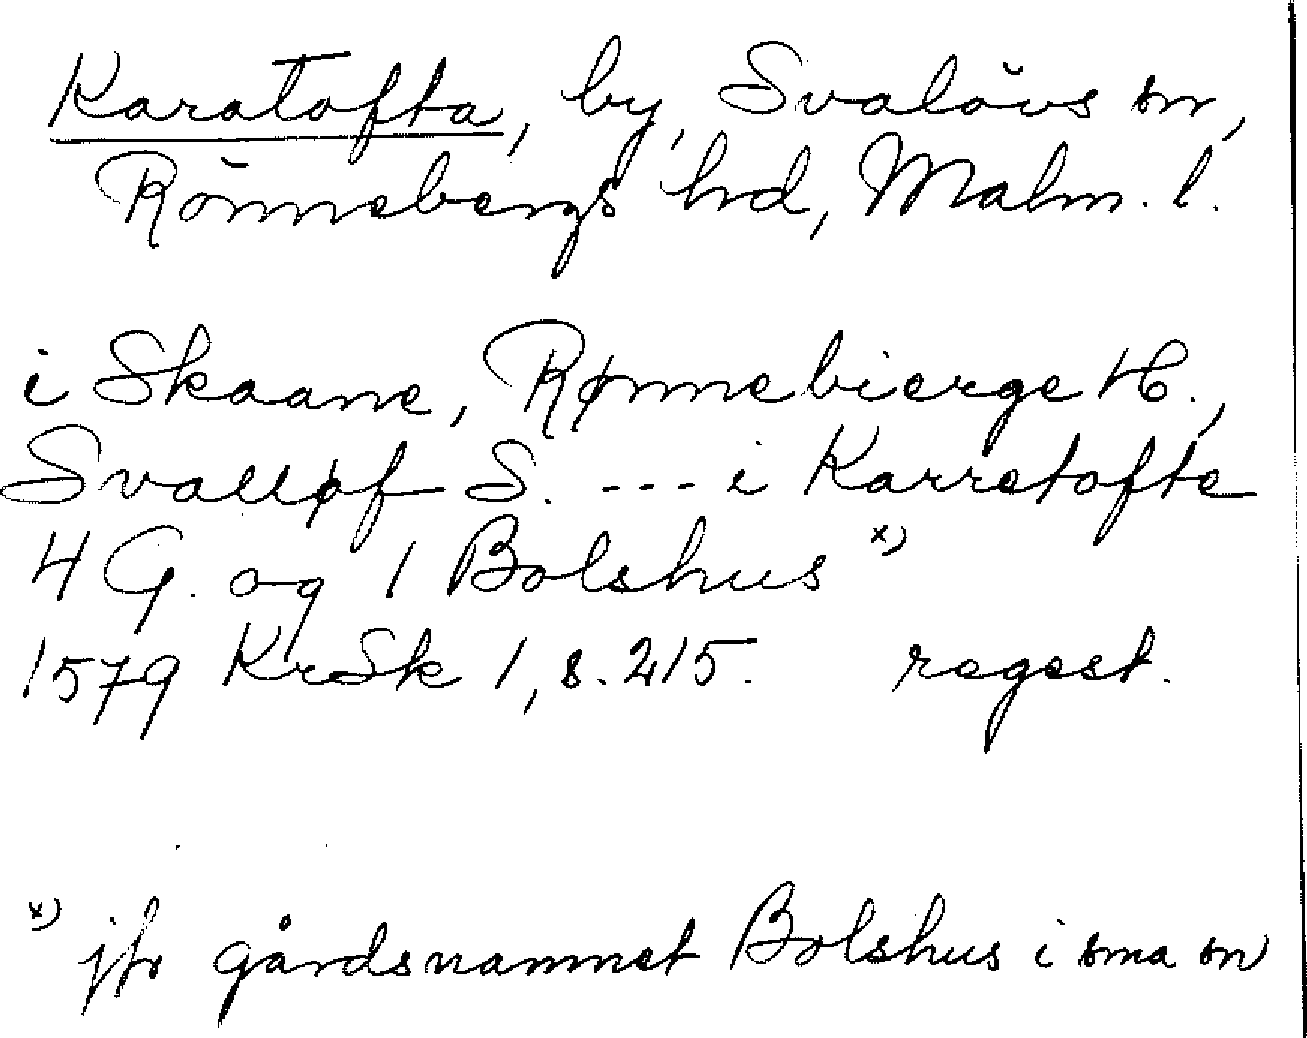 Karatofta, by, Svalövs sn,
Rönnebergs hd, Malm. l.
i Skaane, Rønnebierge H.,
Svalløf S. --- i Karretofte
4 G. og 1 Bolshus x)
1579 KrSk 1, s. 215. regest.
x) jfr gårdsnamnet Bolshus i sma sn